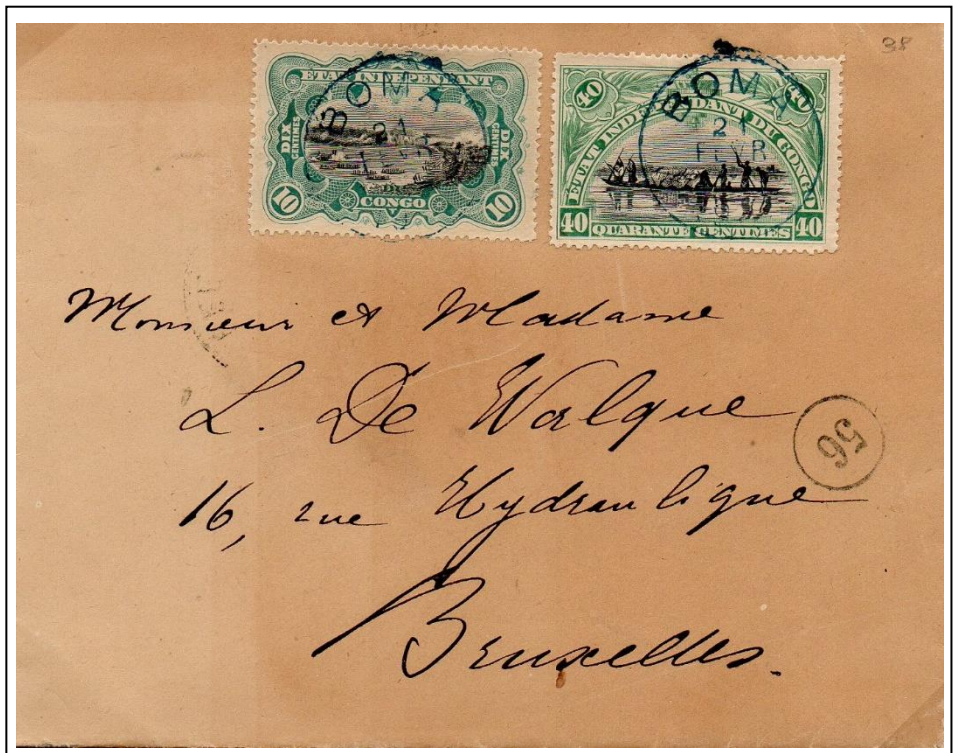 38
ETAT INDEPENDANT
DIX CENTIMES
DIX CENTIMES
DU
CONGO
10
10
BOMA
21
FEVR
40
40
ETAT INDEPENDANT DU CONGO
40 QUARANTE CENTIMES 40
BOMA
21
FEVR
Monsieur et Madame
L. De Walque
56
16, rue Hydraulique
Bruxelles.